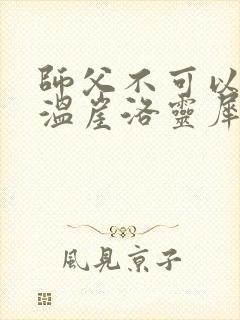 師父不可以
溫崖洛靈犀
風見京子